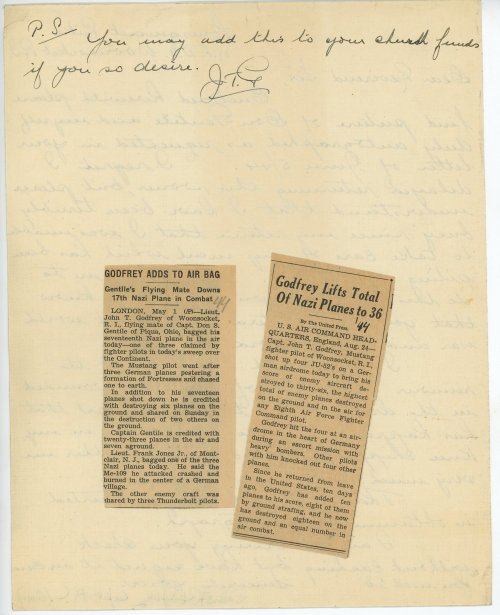 P.S. You may add this to your church funds
if you so desire.
J.T.G.
GODFREY ADDS TO AIR BAG
Gentile's Flying Mate Downs
17th Nazi Plane in Combat
44
LONDON, May 1 (AP)—Lieut.
John T. Godfrey of Woonsocket,
R. I., flying mate of Capt. Don S.
Gentile of Piqua, Ohio, bagged his
seventeenth Nazi plane in the air
today—one of three claimed by
fighter pilots in today's sweep over
the Continent.
The Mustang pilot went after
three German planes pestering a
formation of Fortresses and chased
one to earth.
In addition to his seventeen
planes shot down he is credited
with destroying six planes on the
ground and shared on Sunday in
the destruction of two others on
the ground.
Captain Gentile is credited with
twenty-three planes in the air and
seven aground.
Lieut. Frank Jones Jr., of Mont-
clair, N. J., bagged one of the three
Nazi planes today. He said the
Me-109 he attacked crashed and
burned in the center of a German
village.
The other enemy craft was
shared by three Thunderbolt pilots.
Godfrey Lifts Total
Of Nazi Planes to 36
By the United Press.
44
U. S. AIR COMMAND HEAD-
QUARTERS, England, Aug. 24—
Capt. John T. Godfrey, Mustang
fighter pilot of Woonsocket, R. I.,
shot up four JU-52's on a Ger-
man airdrome today to bring his
score of enemy aircraft de-
stroyed to thirty-six, the highest
total of enemy planes destroyed
on the ground and in the air for
any Eighth Air Force Fighter
Command pilot.
Godfrey hit the four at an air-
drome in the heart of Germany
during an escort mission with
heavy bombers. Other pilots
with him knocked out four other
planes.
Since he returned from leave
in the United States, ten days
ago, Godfrey has added ten
planes to his score, eight of them
by ground strafing, and he now
has destroyed eighteen on the
ground and an equal number in
air combat.